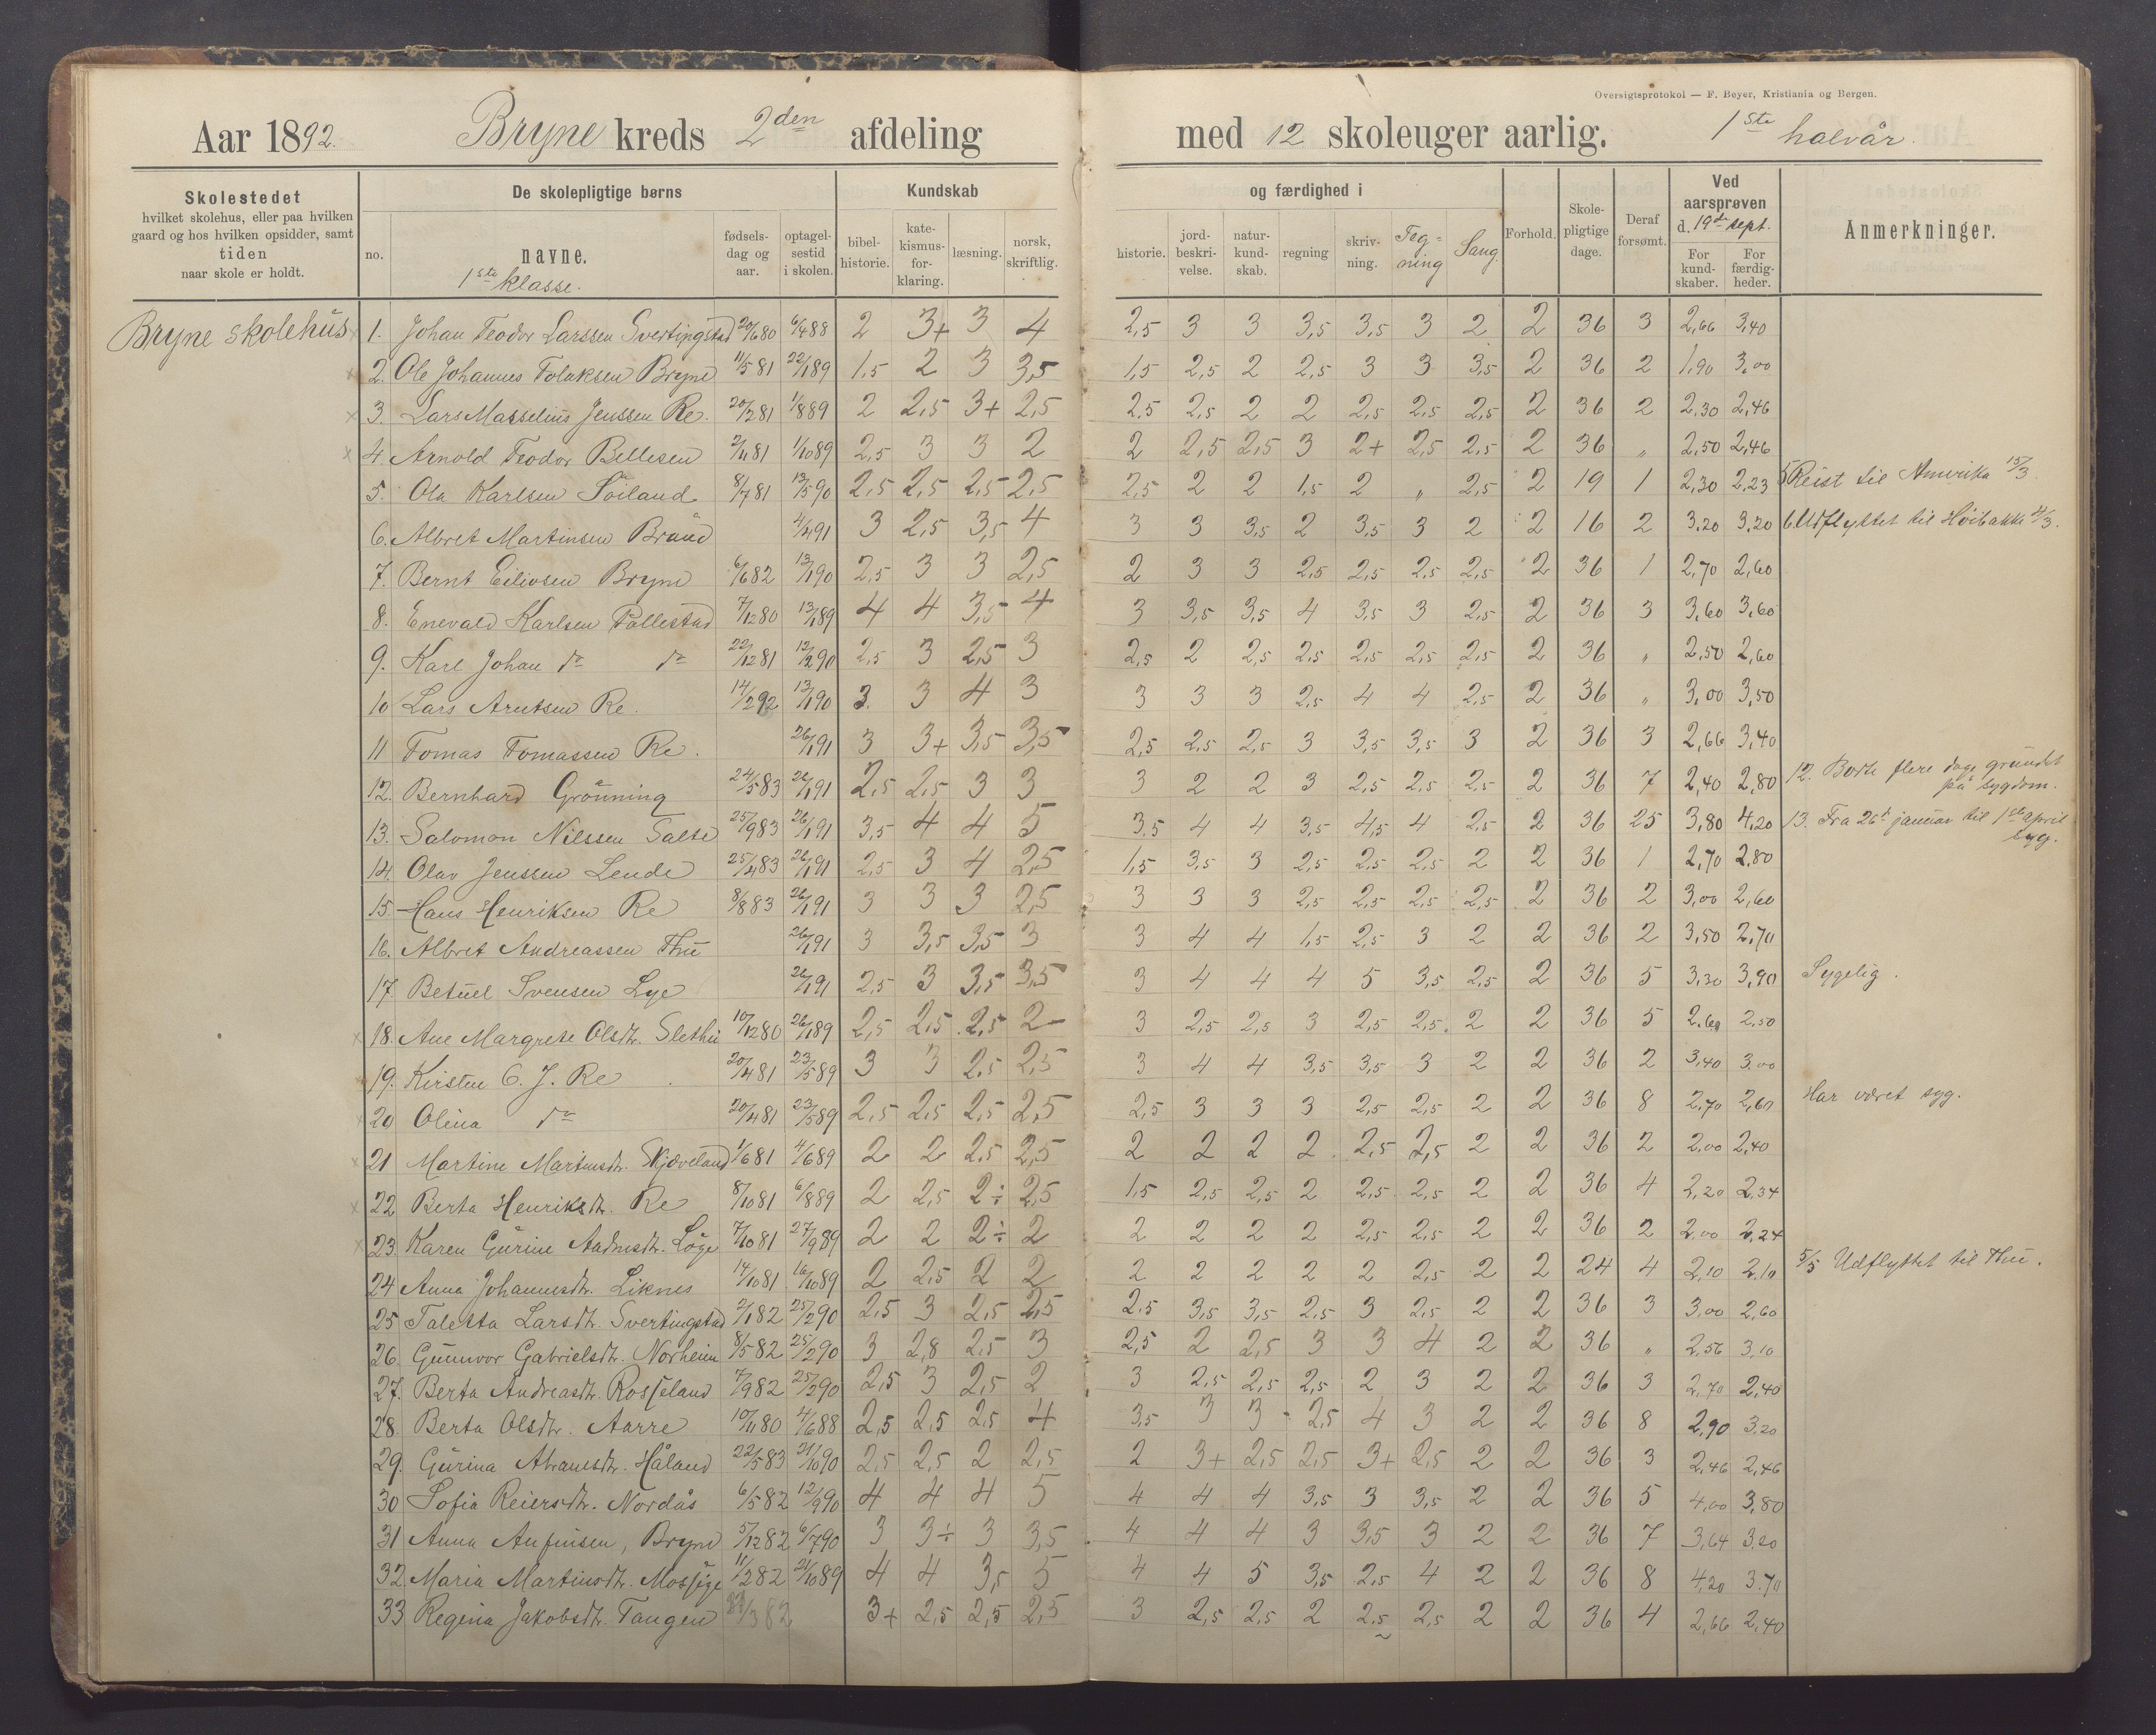 Oversigtsprotokol — F. Beyer, Kristiania og Bergen.
Aar 1892. Bryne kreds 2den afdeling med 12 skoleuger aarlig. 1ste halvår.
Skolestedet hvilket skolehus, eller paa hvilken gaard og hos hvilken opsidder, samt tiden naar skole er holdt.
De skolepligtige børns
no. navne. fødsels-dag og aar. optagel-sestid i skolen.
1ste klasse.
Kundskab og færdighed i
bibel-historie. kate-kismus-for-klaring. læsning. norsk, skriftlig. historie. jord-beskri-velse. natur-kund-skab. regning skriv-ning. Teg-ning Sang. Forhold. Skole-pligtige dage. Deraf forsømt.
Ved aarsprøven d. 19de sept. For kund-skaber. For færdig-heder.
Anmerkninger.
Bryne skolehus
1. Johan Teodor Larssen Svertingstad 20/6 80 6/4 88 2 3+ 3 4 2,5 3 3 3,5 3,5 3 2 2 36 3 2,66 3,40
2. Ole Johannes Tolaksen Bryne 11/5 81 22/1 89 1,5 2 3 3,5 1,5 2,5 2 2,5 3 3 3,5 2 36 2 1,90 3,00
3. Lars Masselius Jenssen Re. 20/2 81 1/8 89 2 2,5 3+ 2,5 2,5 2,5 2 2 2,5 2,5 2,5 2 36 2 2,30 2,46
4. Arnold Teodor Bellesen 2/11 81 1/10 89 2,5 3 3 2 2 2,5 2,5 3 2+ 2,5 2,5 2 36 „ 2,50 2,46
5. Ola Karlsen Söiland 8/7 81 13/5 90 2,5 2,5 2,5 2,5 2,5 2 2 1,5 2 „ 2,5 2 19 1 2,30 2,23 5 Reist til Amerika 15/3.
6. Albret Martinsen Braud 4/4 91 3 2,5 3,5 4 3 3 3,5 2 3,5 3 2 2 16 2 3,20 3,20 6. Udflyttet til Höibakke 4/3.
7. Bernt Eilivsen Bryne 6/6 82 13/1 90 2,5 3 3 2,5 2 3 3 2,5 2,5 2,5 2,5 2 36 1 2,70 2,60
8. Enevald Karlsen Tollestad 7/12 80 13/1 89 4 4 3,5 4 3 3,5 3,5 4 3,5 3 2,5 2 36 3 3,60 3,60
9. Karl Johan do do 22/12 81 12/2 90 2,5 3 2,5 3 2,5 2 2,5 2,5 2,5 2,5 2,5 2 36 „ 2,50 2,60
10 Lars Arntsen Re. 14/2 92 13/1 90 3. 3 4 3 3 3 3 2,5 4 4 2,5 2 36 „ 3,00 3,50
11 Tomas Tomassen Re. 26/1 91 3 3+ 3,5 3,5 2,5 2,5 2,5 3 3,5 3,5 3 2 36 3 2,66 3,40
12. Bernhard Grönning 24/5 83 26/1 91 2,5 2,5 3 3 3 2 2 3 2,5 2,5 2,5 2 36 7 2,40 2,80 12. Borte flere dage grundet på sygdom.
13. Salomon Nilssen Salte 25/9 83 26/1 91 3,5 4 4 5 3,5 4 4 3,5 4,5 4 2,5 2 36 25 3,80 4,20 13. Fra 26de januar til 1ste april syg.
14. Olav Jenssen Lende 25/4 83 26/1 91 2,5 3 4 2,5 1,5 3,5 3 2,5 2,5 2,5 2 2 36 1 2,70 2,80
15. Hans Henriksen Re 8/8 83 26/1 91 3 3 3 2,5 3 3 3 2,5 2,5 2,5 2,5 2 36 2 3,00 2,60
16. Albret Andreassen Thu 26/1 91 3 3,5 3,5 3 3 4 4 1,5 2,5 3 2 2 36 2 3,50 2,70
17 Betuel Svensen Lye 26/1 91 2,5 3 3,5 3,5 3 4 4 4 5 3,5 2,5 2 36 5 3,30 3,90 Sygelig.
18. Ane Margrete Olsdtr. Slethei 10/12 80 26/1 89 2,5 2,5 2,5 2- 3 2,5 2,5 3 2,5 2,5 2 2 36 5 2,60 2,50
19. Kirsten C. J. Re 20/4 81 23/5 89 3 3 2,5 2,5 3 4 4 3,5 3,5 3 2 2 36 2 3,40 3,00
20 Olina do 20/4 81 23/5 89 2,5 2,5 2,5 2,5 2,5 3 3 3 2,5 2,5 2 2 36 8 2,70 2,60 Har været syg.
21 Martine Martinsdtr. Skjæveland 1/6 81 4/6 89 2 2 2,5 2,5 2 2 2 2 2,5 2,5 2 2 36 2 2,00 2,40
22 Berta Henriksdtr. Re 8/10 81 6/8 89 2 2,5 2÷ 2,5 1,5 2,5 2,5 2 2,5 2,5 2 2 36 4 2,20 2,34
23. Karen Gurine Aadnesdtr. Löge 7/10 81 27/9 89 2 2 2÷ 2 2 2 2 2 2,5 2,5 2 2 36 2 2,00 2,24
24 Anna Johannesdtr. Liknes 14/10 81 16/10 89 2 2,5 2 2 2 2 2 2 2 2,5 2 2 24 4 2,10 2,10 5/5 Udflyttet til Thu.
25 Taletta Larsdtr. Svertingstad 2/1 82 25/2 90 2,5 3 2,5 2,5 2,5 3,5 3,5 2,5 3 2,5 2 2 36 3 3,00 2,60
26. Gunnvor Gabrielsdtr. Norheim 8/5 82 25/2 90 3 2,8 2,5 3 2,5 2 2,5 3 3 4 2 2 36 „ 2,56 3,10
27. Berta Andreasdtr. Rosseland 7/9 82 25/2 90 2,5 3 2,5 2 3 2,5 2,5 2,5 2 3 2 2 36 3 2,70 2,40
28. Berta Olsdtr. Aarre 10/11 80 4/6 88 2,5 2,5 2,5 4 3,5 3 3 2,5 4 3 2 2 36 8 2,90 3,20
29. Gurina Abramsdtr. Håland 22/5 83 21/10 90 2,5 2,5 2 2,5 2 3+ 2,5 2,5 3+ 2,5 2 2 36 3 2,46 2,46
30 Sofia Reiersdtr. Nordås 6/5 82 12/9 90 4 4 4 5 4 4 4 3,5 3 3,5 2 2 36 5 4,00 3,80
31 Anna Anfinsen, Bryne 5/12 82 6/7 90 3 3÷ 3 3,5 4 4 4 3 3,5 3 2 2 36 7 3,64 3,20
32 Maria Martinsdtr. Mossige 11/2 82 21/10 89 4 4 3,5 5 4 4 5 3,5 2,5 4 2 2 36 8 4,20 3,70
33 Regina Jakobsdtr. Tangen /3 82 3+ 2,5 2,5 2,5 3 2,5 2,5 2 2,5 2,5 2 2 36 4 2,66 2,40